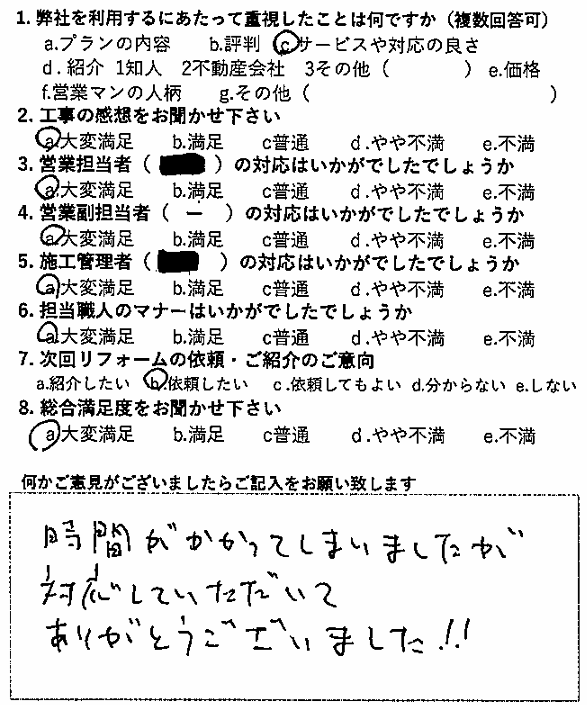 1. 弊社を利用するにあたって重視したことは何ですか（複数回答可）
a.プランの内容 b.評判 c.サービスや対応の良さ
d.紹介 1知人 2不動産会社 3その他（ ） e.価格
f.営業マンの人柄 g.その他（ ）
2. 工事の感想をお聞かせ下さい
a.大変満足 b.満足 c普通 d.やや不満 e.不満
3. 営業担当者（ ）の対応はいかがでしたでしょうか
a.大変満足 b.満足 c普通 d.やや不満 e.不満
4. 営業副担当者（ ー ）の対応はいかがでしたでしょうか
a.大変満足 b.満足 c普通 d.やや不満 e.不満
5. 施工管理者（ ）の対応はいかがでしたでしょうか
a.大変満足 b.満足 c普通 d.やや不満 e.不満
6. 担当職人のマナーはいかがでしたでしょうか
a.大変満足 b.満足 c普通 d.やや不満 e.不満
7. 次回リフォームの依頼・ご紹介のご意向
a.紹介したい b.依頼したい c.依頼してもよい d.分からない e.しない
8. 総合満足度をお聞かせ下さい
a.大変満足 b.満足 c普通 d.やや不満 e.不満
何かご意見がございましたらご記入をお願い致します
時間がかかってしまいましたが
対応していただいて
ありがとうございました!!